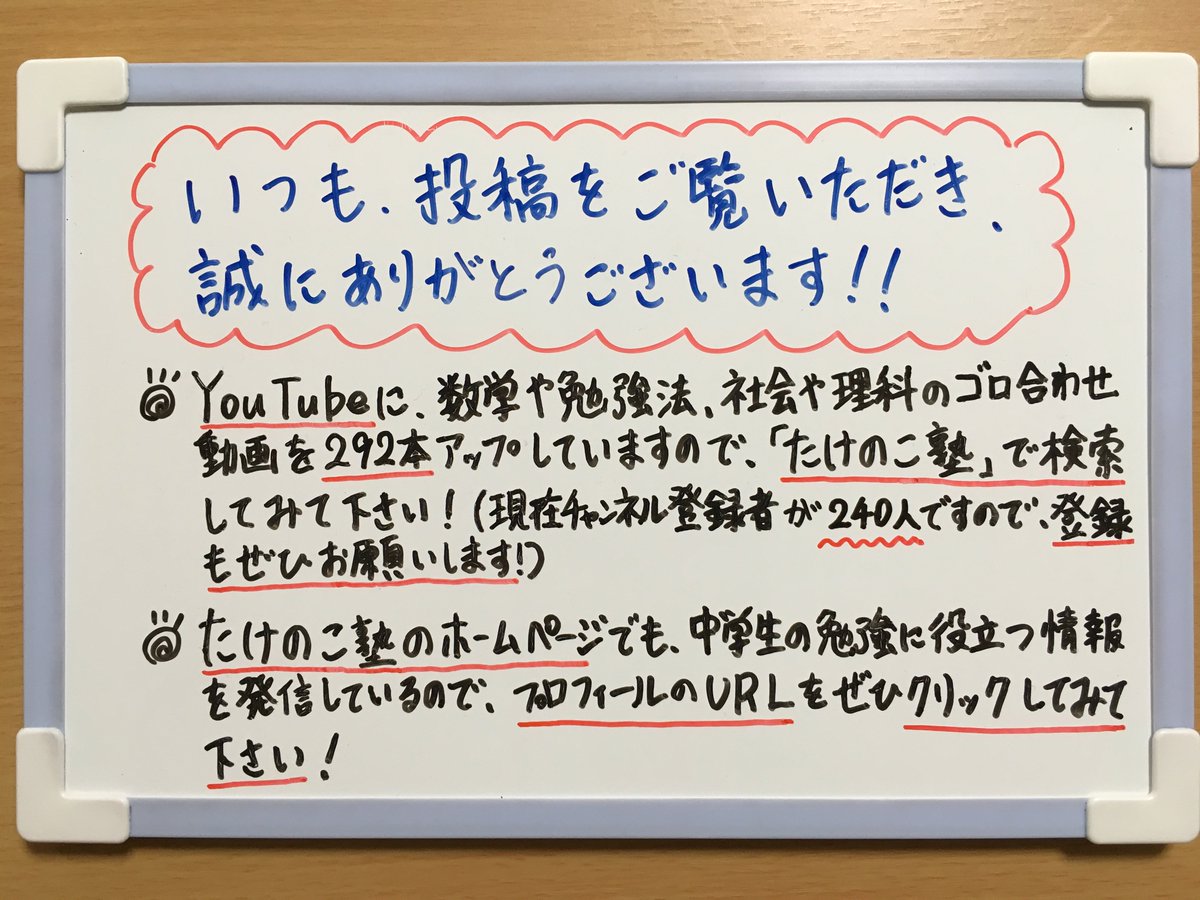 いつも、投稿をご覧いただき、
誠にありがとうございます!!
YouTubeに、数学や勉強法、社会や理科のゴロ合わせ
動画を292本アップしていますので、「たけのこ塾」で検索
してみて下さい!(現在チャンネル登録者が240人ですので、登録
もぜひお願いします!)
たけのこ塾のホームページでも、中学生の勉強に役立つ情報
を発信しているので、プロフィールのURLをぜひクリックしてみて
下さい!